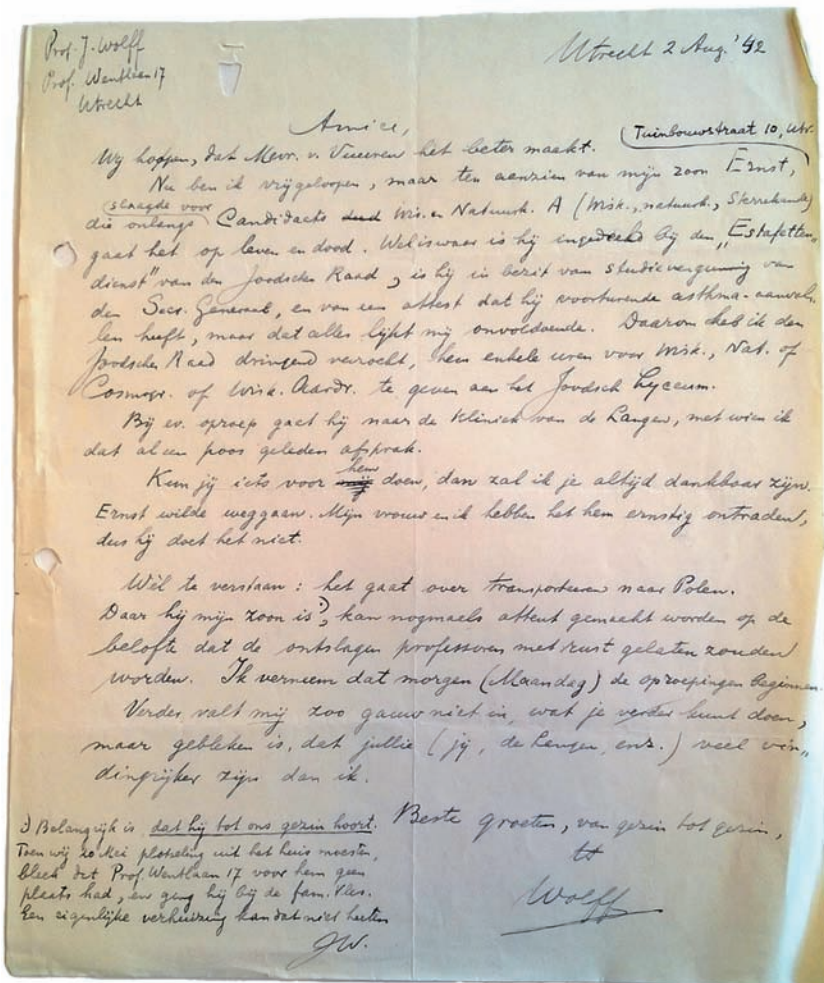 Prof. J. Wolff
Prof. Wentlaan 17
Utrecht
Utrecht 2 Aug. '42
Amice,
Tuinbouwstraat 10, Utr.
Wij hoopen, dat Mevr. v. Vuuren het beter maakt.
Nu ben ik vrijgeloopen, maar ten aanzien van mijn zoon Ernst,
die onlangs slaagde voor Candidaats Wis. en Natuurk. A (Wisk., natuurk., Sterrekunde)
gaat het op leven en dood. Weliswaar is hij ingedeeld bij den „Estafetten„
dienst" van den Joodschen Raad, is hij in bezit van studievergunning van
den Secr. Generaal, en van een attest dat hij voortdurende asthma-aanval-
len heeft, maar dat alles lijkt mij onvoldoende. Daarom heb ik den
Joodschen Raad dringend verzocht, hem enkele uren voor Wisk., Nat. of
Cosmogr. of Wisk. Aardr. te geven aan het Joodsch Lyceum.
Bij ev. oproep gaat hij naar de Kliniek van de Langen, met wien ik
dat al een poos geleden afsprak.
Kun jij iets voor hem doen, dan zal ik je altijd dankbaar zijn.
Ernst wilde weggaan. Mijn vrouw en ik hebben het hem ernstig ontraden,
dus hij doet het niet.
Wèl te verstaan: het gaat over transporteeren naar Polen.
Daar hij mijn zoon is, kan nogmaals attent gemaakt worden op de
belofte dat de ontslagen professoren met rust gelaten zouden
worden. Ik verneem dat morgen (Maandag) de oproepingen beginnen.
Verder valt mij zoo gauw niet in, wat je verder kunt doen,
maar gebleken is, dat jullie (jij, de Langen, enz.) veel vin„
dingrijker zijn dan ik.
Beste groeten, van gezin tot gezin,
tt
Wolff
Belangrijk is dat hij tot ons gezin hoort.
Toen wij 20 Mei plotseling uit het huis moesten,
bleek dat Prof. Wentlaan 17 voor hem geen
plaats had, en ging hij bij de fam. Vles.
Een eigenlijke verhuizing kan dat niet heeten
JW.